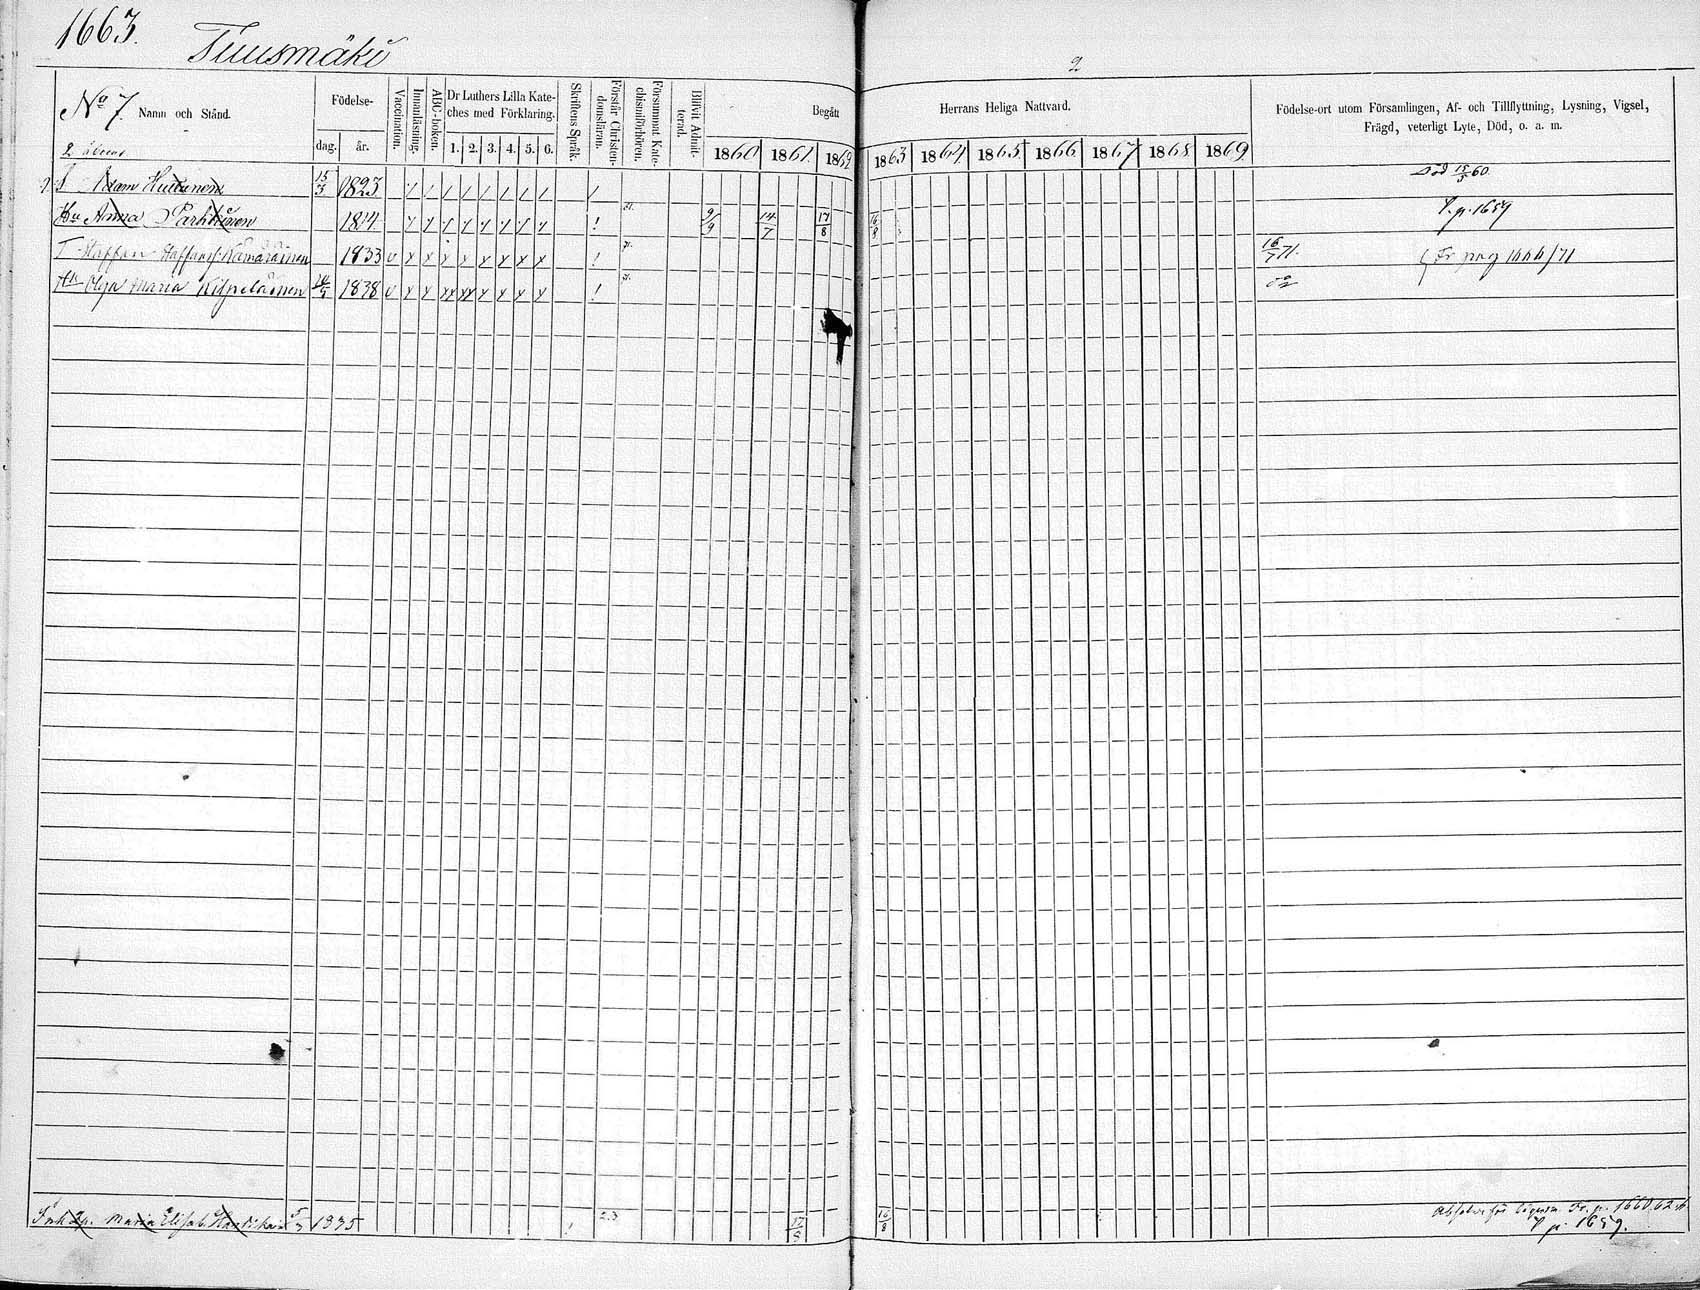 1663.
Tuusmäki
2
No 7. Namn och Stånd.
Födelse-
dag. år.
Vaccination.
Innanläsning.
ABC-boken.
Dr Luthers Lilla Kate-
ches med Förklaring.
1. 2. 3. 4. 5. 6.
Skriftens Språk.
Förstår Christen-
domsläran.
Försummat Kate-
chismiförhören.
Blifvit Admit-
terad.
Begått Herrans Heliga Nattvard.
1860 1861 1862 1863 1864 1865 1866 1867 1868 1869
Födelse-ort utom Församlingen, Af- och Tillflyttning, Lysning, Vigsel,
Frägd, veterligt Lyte, Död, o. a. m.
Adam Huttunen 15/3 1823 Död 15/5 60
Hu Anna Parkkinen 1814 9/9 14/7 17/8 16/8 p. 1659
Staffan Staffansf. Kämäräinen 1833 v x x x x x x x x ! 71. 16/7 71. Fr pag 1444/71
Hu Olga Maria Kilpeläinen 1838 v x x xx xx x x x x !
Maria Elisab. 1835 ! 23 17/8 16/8 Fr. p. 1660.62
p. 1659.